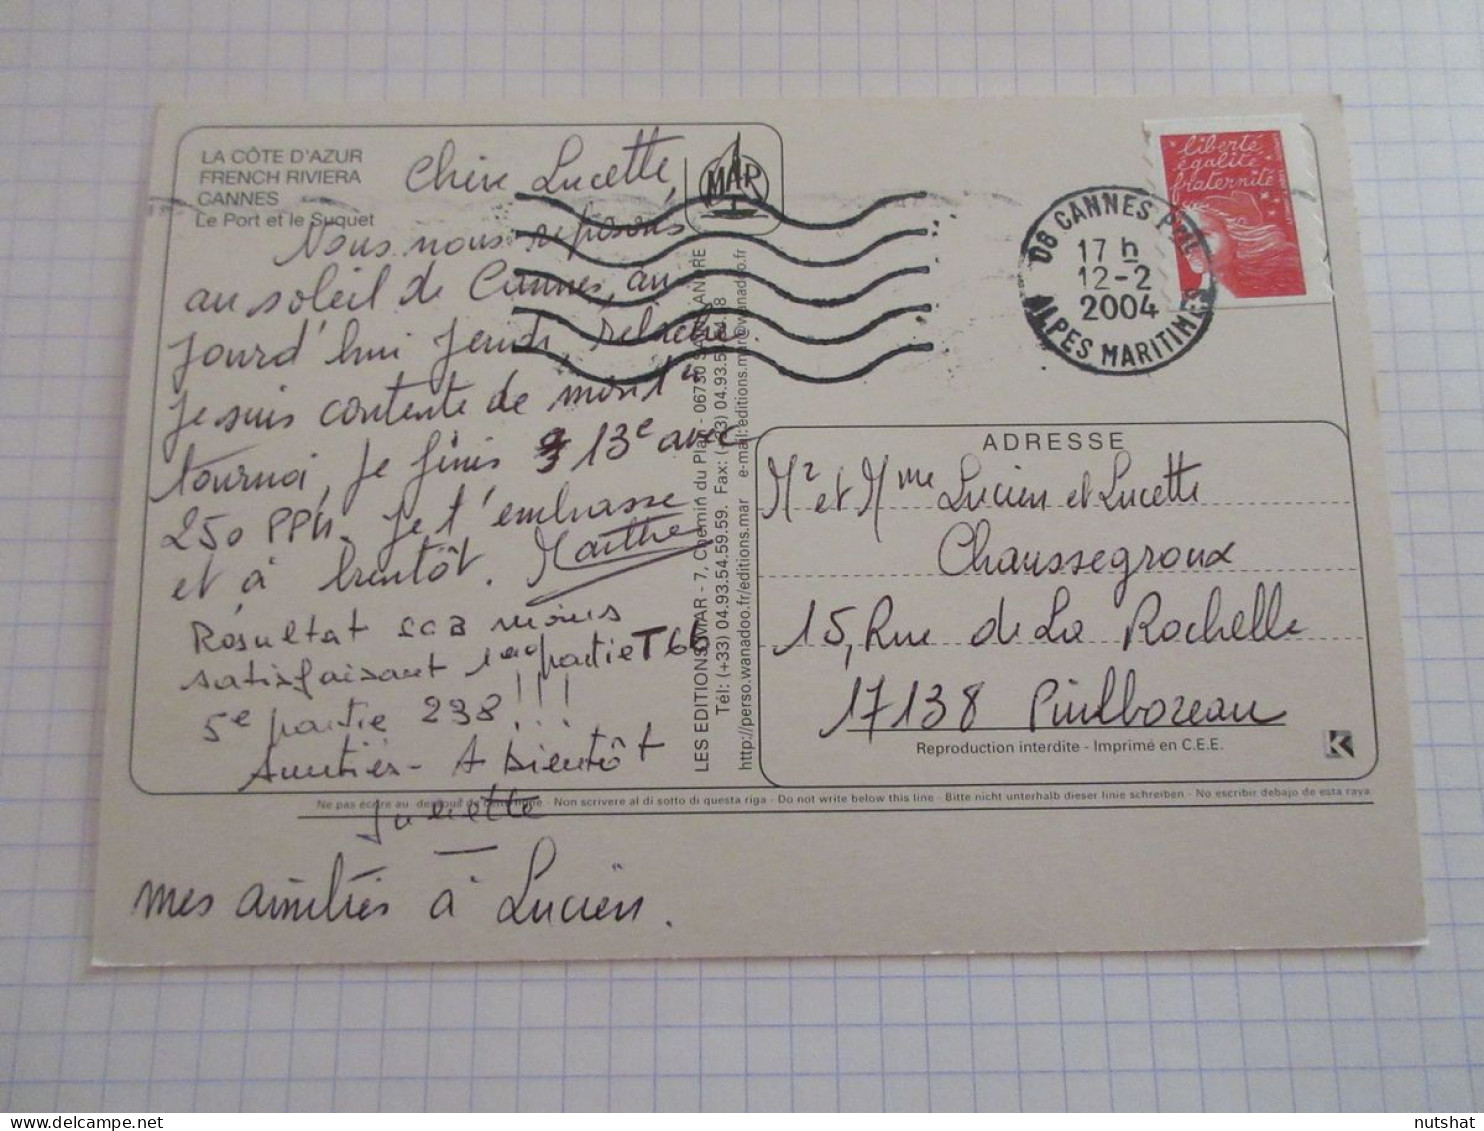 LA CÔTE D'AZUR
FRENCH RIVIERA
CANNES
Le Port et le Suquet
Chère Lucette,
Nous nous reposons
au soleil de Cannes, au
jourd'hui jeudi, relâche.
Je suis contente de mon 1er
tournoi, je finis 13e avec
250 PPH. Je t'embrasse
et à bientôt. Marthe
Résultat moins
satisfaisant 1ère partie T66
5e partie 238 !!!
Amitiés - A bientôt
Juliette
mes amitiés à Lucien.
MAR
LES EDITIONS MAR - 7, Chemin du Plan - 06730 SAINT ANDRÉ
Tél: (+33) 04.93.54.59.59. Fax: (+33) 04.93.54.
http://perso.wanadoo.fr/editions.mar e-mail:editions.mar@wanadoo.fr
liberté
égalité
fraternité
06 CANNES PPAL
17 h
12-2
2004
ALPES MARITIMES
ADRESSE
Mr et Mme Lucien et Lucette
Chaussegroux
15, Rue de La Rochelle
17138 Puilboreau
Reproduction interdite - Imprimé en C.E.E.
K
Ne pas écrire au dessous de cette ligne - Non scrivere al di sotto di questa riga - Do not write below this line - Bitte nicht unterhalb dieser linie schreiben - No escribir debajo de esta raya
nutshat